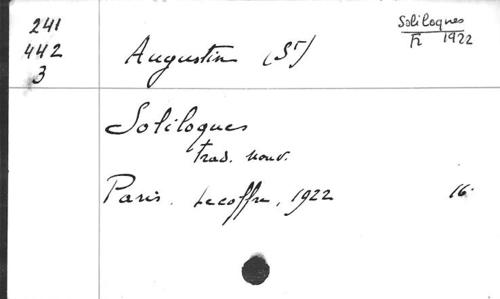 241
442
3
Soliloques
Fr 1922
Augustin (St)
Soliloques
Trad. nouv.
Paris. Lecoffre, 1922 16.